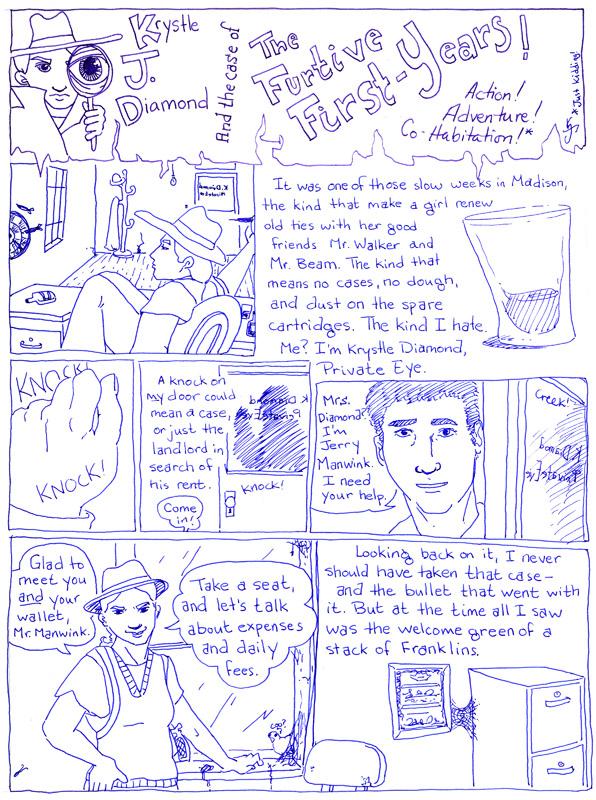 Krystle
J.
Diamond
And the case of
The
Furtive
First-Years!
Action!
Adventure!
Co-Habitation!*
*Just kidding!
It was one of those slow weeks in Madison,
the kind that make a girl renew
old ties with her good
friends Mr. Walker and
Mr. Beam. The kind that
means no cases, no dough,
and dust on the spare
cartridges. The kind I hate.
Me? I'm Krystle Diamond,
Private Eye.
KNOCK!
KNOCK!
A knock on
my door could
mean a case,
or just the
landlord in
search of
his rent.
Come
in!
K Diamond
Private Eye
KNOCK!
Mrs.
Diamond?
I'm
Jerry
Manwink.
I need
your help.
Creek!
K Diamond
Private Eye
Glad to
meet you
and your
wallet,
Mr. Manwink.
Take a seat,
and let's talk
about expenses
and daily
fees.
Coo?
Looking back on it, I never
should have taken that case—
and the bullet that went with
it. But at the time all I saw
was the welcome green of a
stack of Franklins.